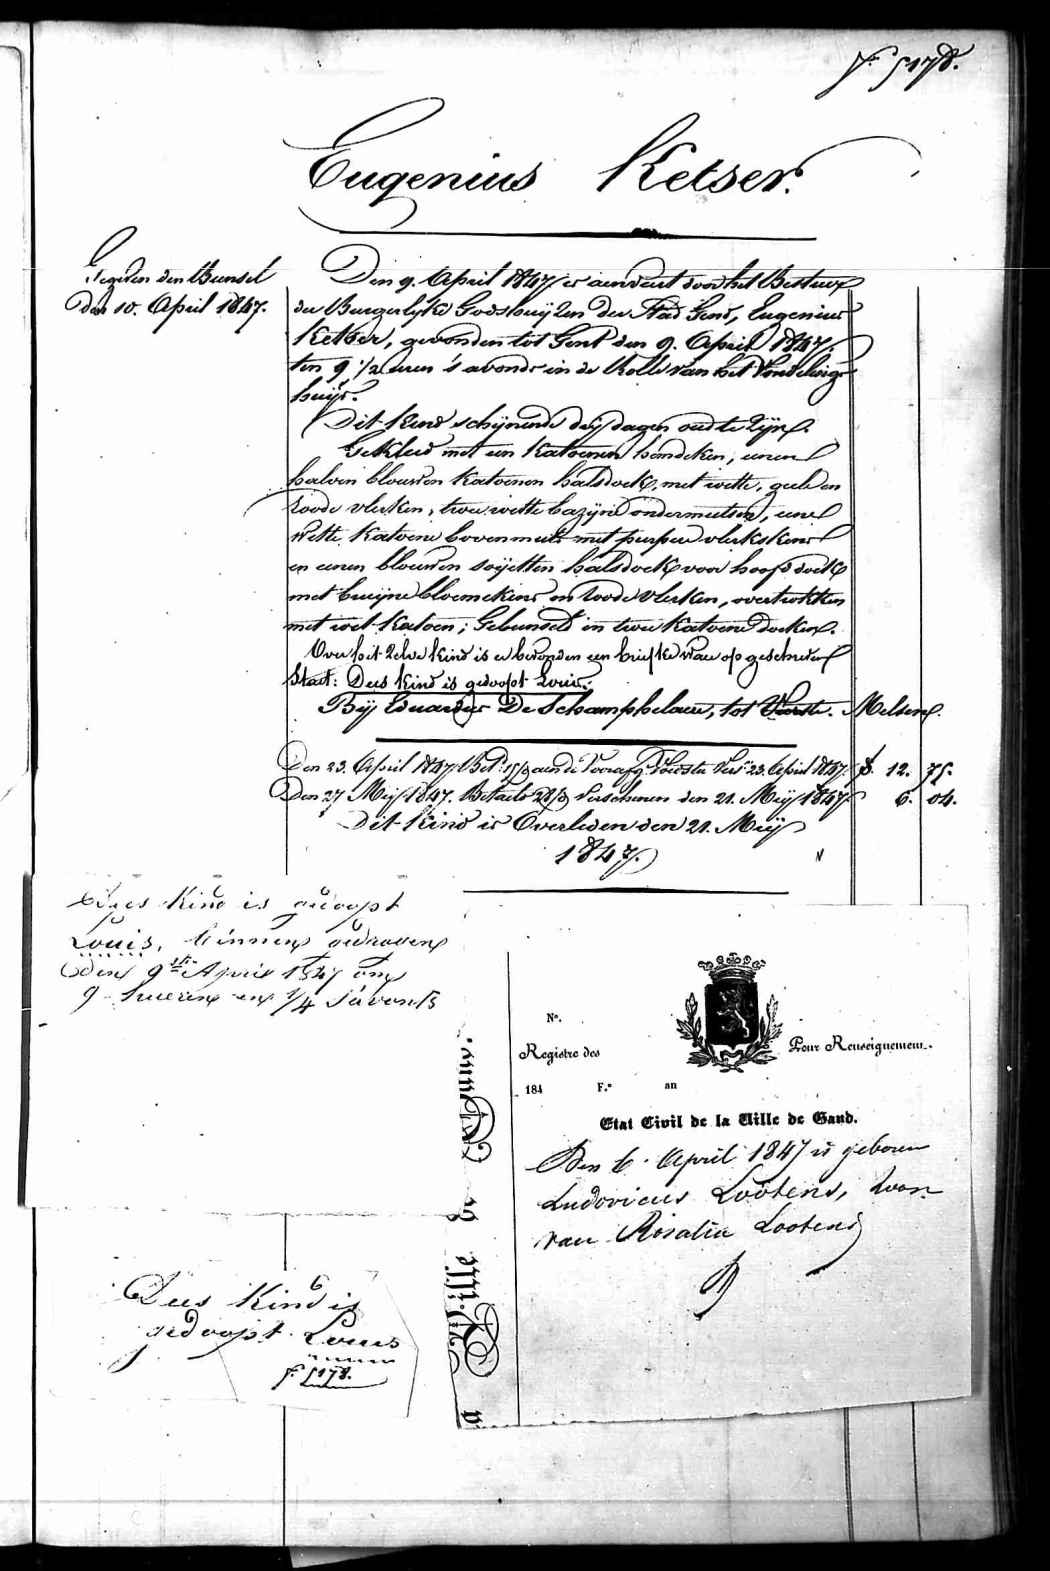 F. 5178.
Eugenius Ketser.
Gegeven den Bunsel
den 10. April 1847.
Den 9. April 1847 is aenveert door het Bestuur
der Burgerlyke Godshuyzen der Stad Gend, Eugenius
Ketser, gevonden tot Gent den 9. April 1847.
ten 9 1/2 uren 's avonds in de Rolle van het Vondelings
huys.
Dit kind schynende dry dagen oud te zyn.
Gekleed met een katoenen hemdeken, eenen
halven blauwen katoenen halsdoek, met witte, geele en
roode vlekken, twee witte bazyne ondermutsen, eene
witte katoene bovenmuts met purpere vlekskens
en eenen blauwen sayetten halsdoek voor hoofddoek
met bruyne bloemekens en roode vlekken, overtrokken
met wit katoen; Gebunseld in twee katoene doeken.
Over dit zelve kind is er bevonden een briefke waer op geschreven
staet: Dees kind is gedoopt Louis.
By Eduardus De Schamphelaere, tot Melsen.
Den 23. April 1847 Bet. aen de Voorafg. Voedster Vers. 23. April 1847 f. 12. 75.
Den 27 Mey 1847. Betaeld Verschenen den 21. Mey 1847 6. 04.
Dit kind is Overleden den 21. Mey
1847.
Dees Kind is gedoopt
Louis, binnen gedraeven
den 9ste April 1847 om
9 hueren en 1/4 s'avonts
Dees Kind is
gedoopt Louis
F. 5178.
No.
Registre des
Pour Renseignement.
184 F.o an
Etat Civil de la Ville de Gand.
Den 6. April 1847 is geboren
Ludovicus Lootens, zoon
van Rosalia Lootens